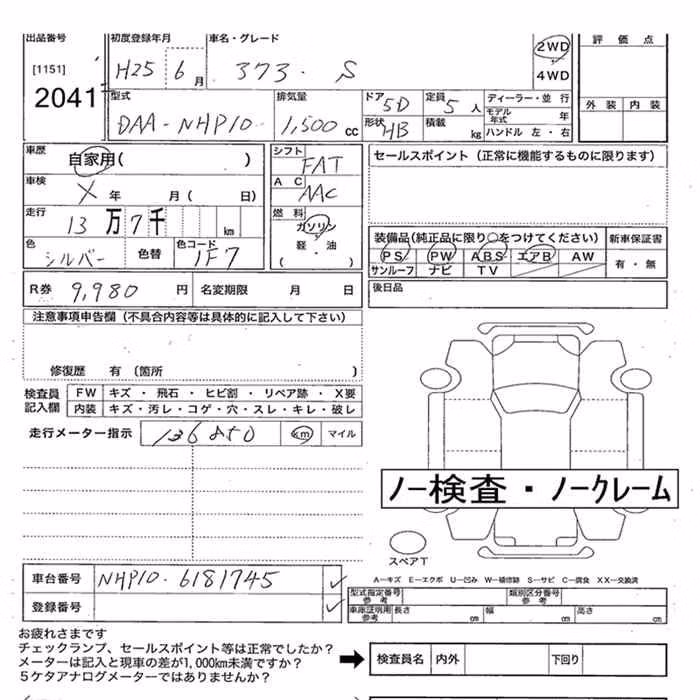 出品番号
[1151]
2041
初度登録年月
H25 6 月
車名・グレード
373. S
2WD
4WD
評価点
外装 内装
型式
DAA-NHP10
排気量
1,500 cc
ドア 5D
形状 HB
定員 5 人
積載 kg
ディーラー・並行
モデル年式 年
ハンドル 左・右
車歴
自家用( )
車検
X 年 月( 日)
走行
13 万 7 千 km
色
シルバー
色替
色コード
1F7
シフト
FAT
AC
AAC
燃料
ガソリン
軽・油
( )
セールスポイント(正常に機能するものに限ります)
装備品(純正品に限り○をつけてください)
PS PW ABS エアB AW
サンルーフ ナビ TV
新車保証書
有・無
後日品
R券 9,980 円
名変期限 月 日
注意事項申告欄(不具合内容等は具体的に記入して下さい)
修復歴 有〔箇所 〕
検査員記入欄
FW キズ・飛石・ヒビ割・リペア跡・X要
内装 キズ・汚レ・コゲ・穴・スレ・キレ・破レ
走行メーター指示
136850
km マイル
ノー検査・ノークレーム
スペアT
A-キズ E-エクボ U-凹み W-補修跡 S-サビ C-腐食 XX-交換済
車台番号
NHP10-6181745
登録番号
型式指定番号 参考
類別区分番号 参考
車庫証明用 参考
長さ cm
幅 cm
高さ cm
お疲れさまです
チェックランプ、セールスポイント等は正常でしたか?
メーターは記入と現車の差が1,000km未満ですか?
5ケタアナログメーターではありませんか?
検査員名 内外 下回り